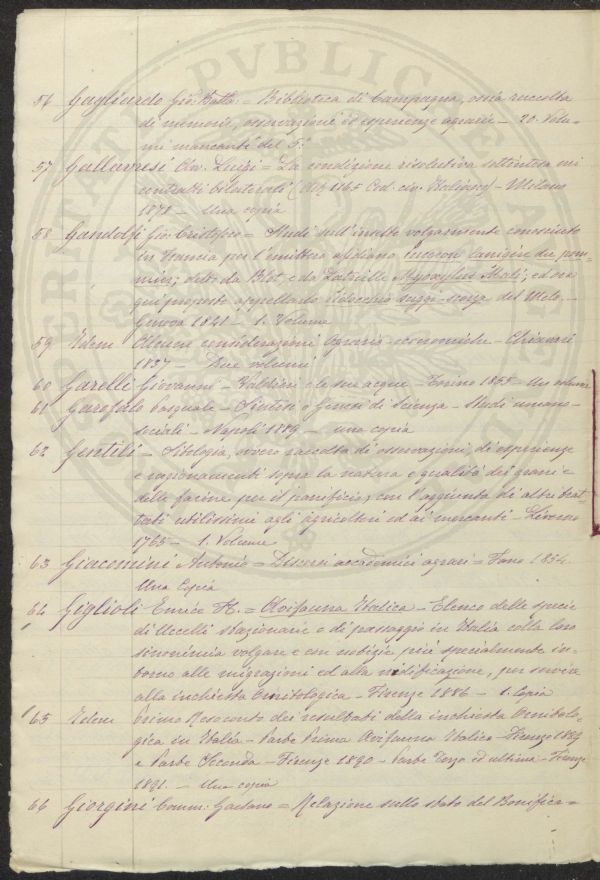 56 Gagliardo Gio: Batta: = Biblioteca di Campagna, ossia raccolta
di memorie, osservazioni ed esperienze agrarie - 20 Volu-
mi mancanti del 5.°
57 Gallavresi Avv. Luigi = La condizione risolutiva sottintesa nei
contratti bilaterali (Art. 1165 Cod. civ. Italiano) - Milano
1878 - Una copia
58 Gandolfi Gio: Cristoforo = Studi sull'insetto volgarmente conosciuto
in Francia per l'emittero afidiano puceron lanigère du pom-
mier; detto da Blot e da Latreille Myzoxylus Mali; ed ora
qui proposto appellarlo
suggi-scorza del Melo. -
Genova 1841 - 1. Volume
59 Idem Alcune considerazioni Agrario-economiche - Chiavari
1837 - Due volumi
60 Garelli Giovanni - Valdieri e le sue acque - Torino 1855 - Un volume
61 Garofalo Pasquale - Sintesi o Genesi di Scienza - Studi umano-
sociali - Napoli 1889 - una copia
62 Gentili - Sitologia, ovvero raccolta di osservazioni, di esperienze
e ragionamenti sopra la natura e qualità dei grani e
delle farine per il panificio; con l'aggiunta di altri trat-
tati utilissimi agli agricoltori ed ai mercanti - Livorno
1765 - 1. Volume
63 Giacomini Antonio = Discorsi accademici agrari = Fano 1854.
Una Copia
64 Giglioli Enrico H. = Avifauna Italica - Elenco delle specie
di Uccelli stazionarie o di passaggio in Italia colla loro
sinonimia volgare e con notizie più specialmente in-
torno alle migrazioni ed alla nidificazione, per servire
alla inchiesta Ornitologica - Firenze 1886 - 1. Copia
65 Idem Primo Resoconto dei resultati della inchiesta Ornitolo-
gica in Italia - Parte Prima Avifauna Italica - Firenze 1889
e Parte Seconda - Firenze 1890 - Parte Terza ed ultima - Firenze
1891. - Una copia
66 Giorgini Comm: Gaetano = Relazione sullo stato del Bonifica=